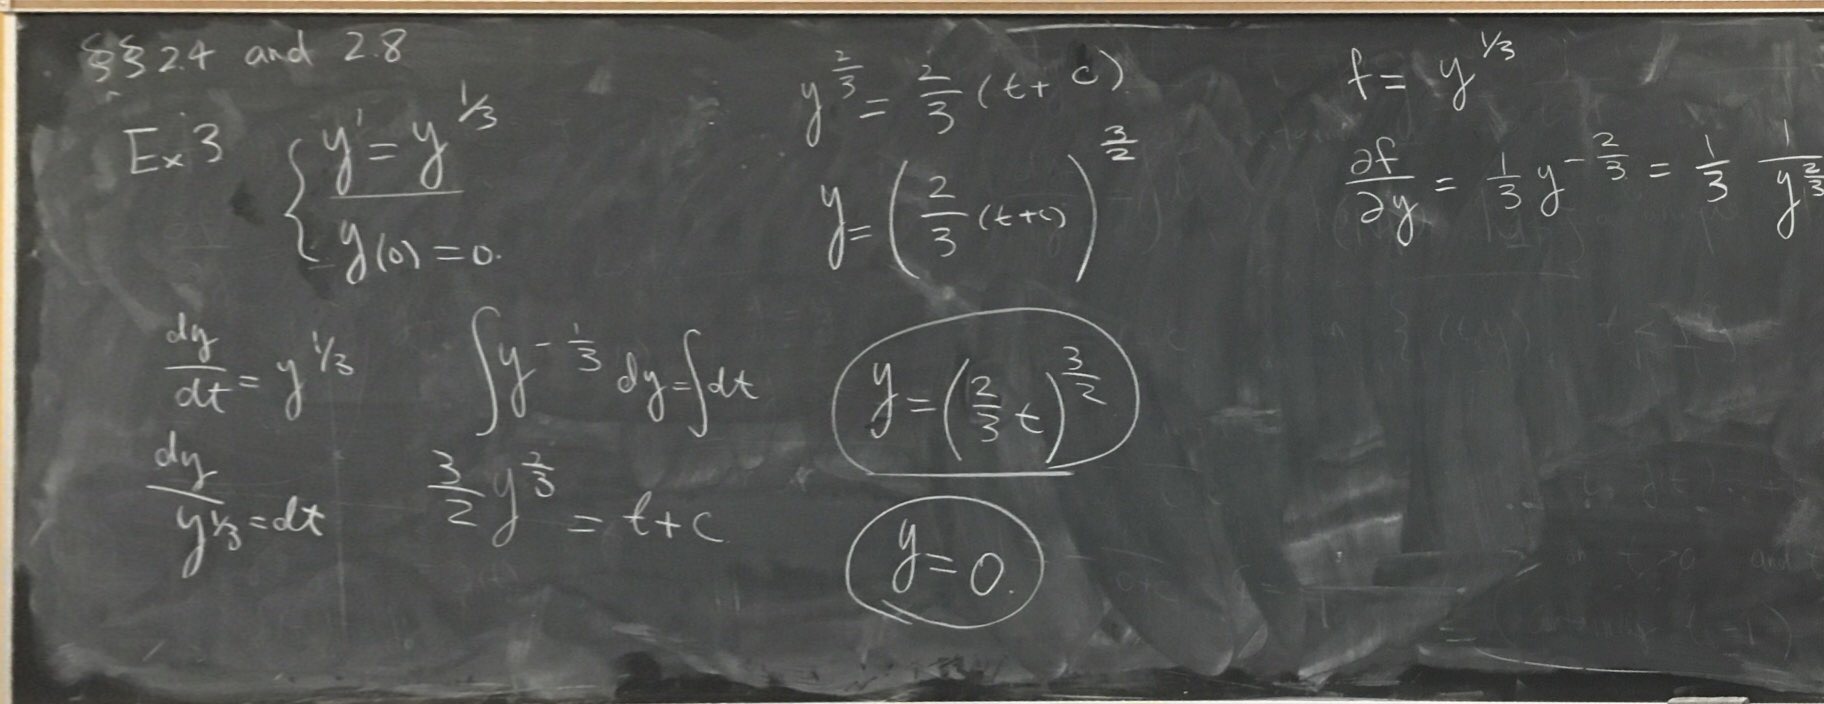 §§ 2.4 and 2.8
Ex 3 { y' = y^{1/3}
y(0) = 0.
dy/dt = y^{1/3}
dy/y^{1/3} = dt
∫ y^{-1/3} dy = ∫ dt
3/2 y^{2/3} = t + c
y^{2/3} = 2/3 (t + c)
y = (2/3 (t+c))^{3/2}
y = (2/3 t)^{3/2}
y = 0.
f = y^{1/3}
∂f/∂y = 1/3 y^{-2/3} = 1/3 1/y^{2/3}